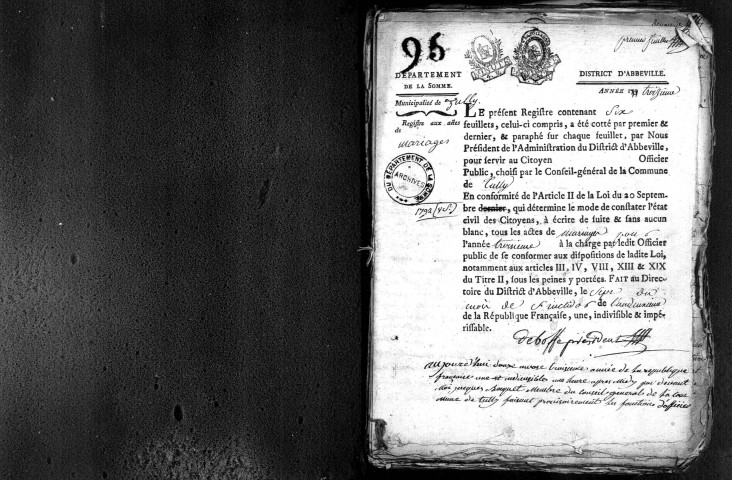 premier feuillet
96
DÉPARTEMENT
DE LA SOMME.
DISTRICT D'ABBEVILLE.
ANNÉE troisième
Municipalité de Tully.
Registre aux actes
de
mariages
DU DÉPARTEMENT DE LA SOMME
ARCHIVES
1792 (4 S.)
LE présent Registre contenant Six
feuillets, celui-ci compris, a été cotté par premier &
dernier, & paraphé sur chaque feuillet, par Nous
Président de l'Administration du District d'Abbeville,
pour servir au Citoyen Officier
Public, choisi par le Conseil-général de la Commune
de Tully
En conformité de l'Article II de la Loi du 20 Septem-
bre dernier, qui détermine le mode de constater l'état
civil des Citoyens, à écrire de suite & sans aucun
blanc, tous les actes de mariages pour
l'année troisieme à la charge par ledit Officier
public de se conformer aux dispositions de ladite Loi,
notamment aux articles III, IV, VIII, XIII & XIX
du Titre II, sous les peines y portées. FAIT au Direc-
toire du District d'Abbeville, le du
mois de fructidor de l'an deuxieme
de la République Française, une, indivisible & impé-
rissable.
président
aujourd'hui douze nivose troisieme année de la republique
française une et indivisible une heure apres midy par devant
moi jacques Membre du conseil general de la com
mune de tully faisant provisoirement les fonctions d'officier